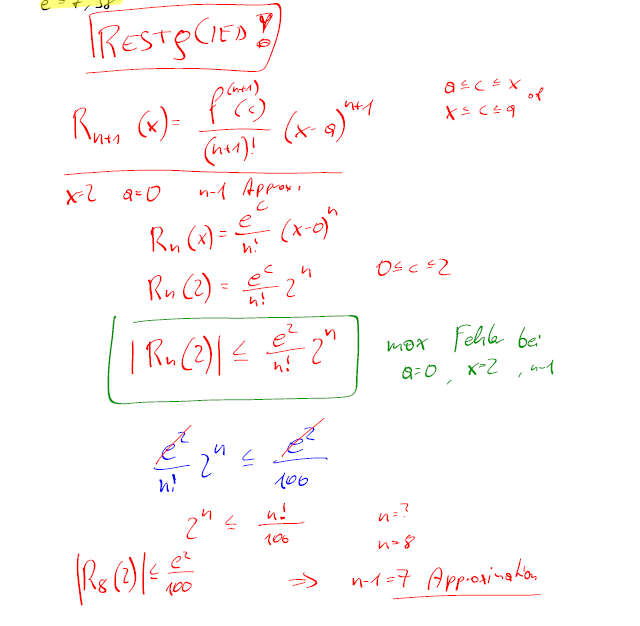 e = 7,38
RESTGLIED!
R_{n+1}(x) = \frac{f^{(n+1)}(c)}{(n+1)!} (x-a)^{n+1}
a ≤ c ≤ x od
x ≤ c ≤ a
x=2 a=0 n-1 Approx.
R_n(x) = \frac{e^c}{n!} (x-0)^n
R_n(2) = \frac{e^c}{n!} 2^n 0 ≤ c ≤ 2
|R_n(2)| ≤ \frac{e^2}{n!} 2^n
max Fehler bei
a=0, x=2, n-1
\frac{e^2}{n!} 2^n ≤ \frac{e^2}{100}
2^n ≤ \frac{n!}{100} n=?
n=8
|R_8(2)| ≤ \frac{e^2}{100} ⇒ n-1=7 Approximation